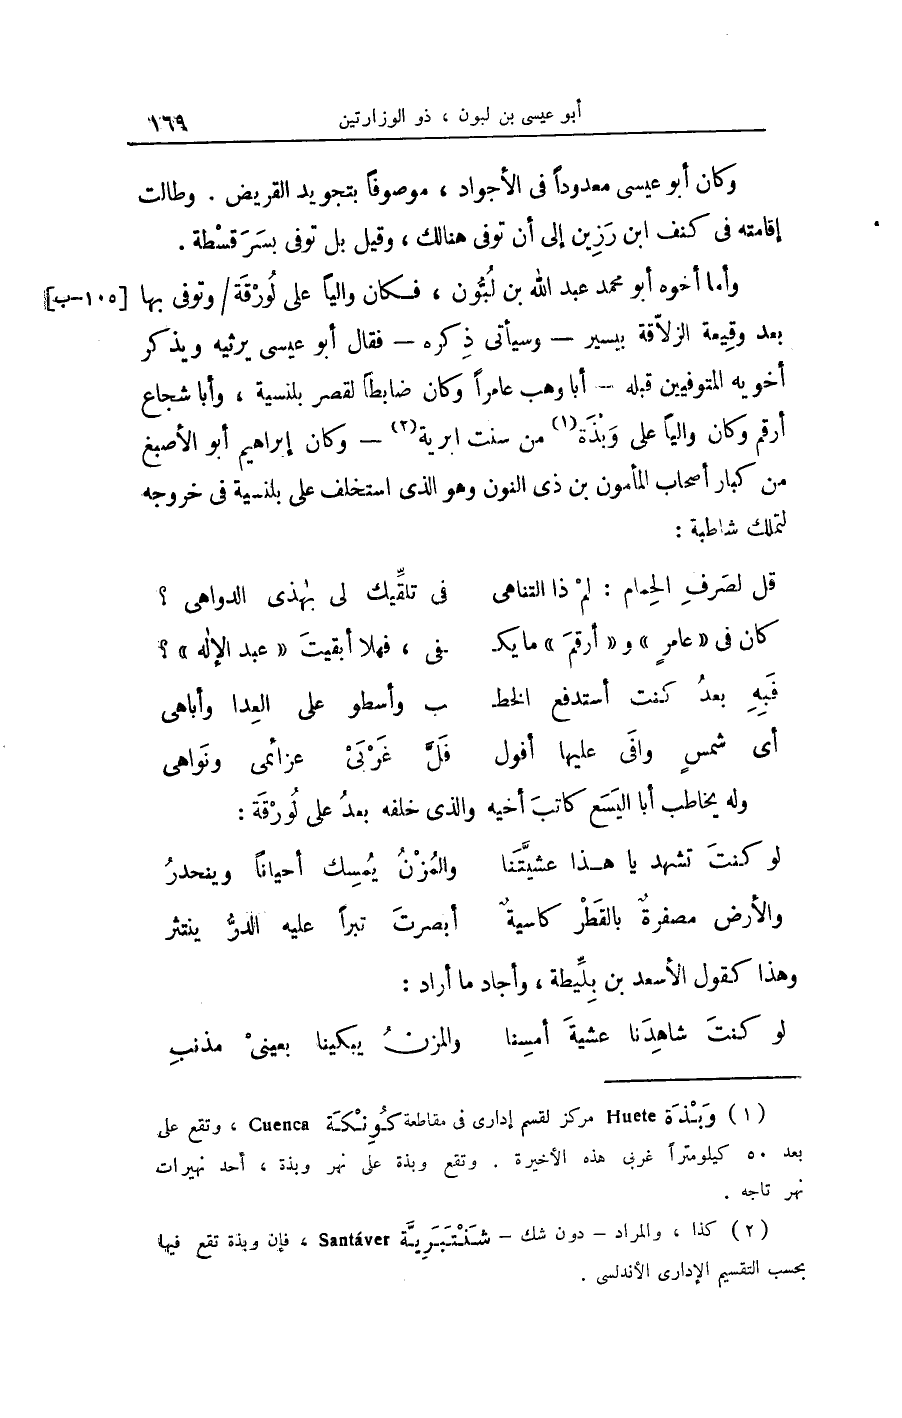 أبو عيسى بن لبون ، ذو الوزارتين ١٦٩
وكان أبو عيسى معدوداً فى الأجواد ، موصوفاً بتجويد القريض . وطالت
إقامته فى كنف ابن رَزِين إلى أن توفى هنالك ، وقيل بل توفى بسَرَقسْطة .
وأما أخوه أبو محمد عبد الله بن لُبُّون ، فكان والياً على لُورْقَة/ وتوفى بها [١٠٥-ب]
بعد وقِيعة الزلاّقة بيسير – وسيأتى ذِكره – فقال أبو عيسى يرثيه ويذكر
أخويه المتوفيين قبله – أبا وهب عامراً وكان ضابطاً لقصر بلنسية ، وأبا شجاع
أرقم وكان والياً على وَبْذَة(١) من سنت ابرية(٢) – وكان إبراهيم أبو الأصبغ
من كبار أصحاب المأمون بن ذى النون وهو الذى استخلف على بلنسية فى خروجه
لتملك شاطبة :
قل لصَرفِ الحِمام : لمْ ذا التناهى فى تلقِّيك لى بهٰذى الدواهى ؟
كان فى « عامرٍ » و « أرقمَ » ما يكـ ـفى ، فهلا أبقيتَ « عبد الإلٰه » ؟
فَبِهِ بعدُ كنت أستدفع الخطـ ـب وأسطو على العِدا وأباهى
أى شمسٍ وافَى عليها أفول فَلَّ غَرْبَىْ عزائمى ونَواهى
وله يخاطب أبا اليَسَع كاتبَ أخيه والذى خلفه بعدُ على لُورْقَة :
لو كنتَ تشهد يا هـذا عشيَّتَنا والمُزْنُ يُمسِك أحياناً وينحدرُ
والأرض مصفرةٌ بالقَطْر كاسيةٌ أبصرتَ تبراً عليه الدرُّ ينتثر
وهذا كقول الأسعد بن بِلِّيطة ، وأجاد ما أراد :
لو كنتَ شاهِدَنا عشيةَ أمسِنا والمزنُ يبكينا بعينىْ مذنبِ
(١) وَبْذَة Huete مركز لقسم إدارى فى مقاطعة كُونِكَة Cuenca ، وتقع على
بعد ٥٠ كيلومتراً غربى هذه الأخيرة . وتقع وبذة على نهر وبذة ، أحد نهيرات
نهر تاجه .
(٢) كذا ، والمراد – دون شك – شَنْتَبَرِيَّة Santáver ، فإن وبذة تقع فيها
بحسب التقسيم الإدارى الأندلسى .